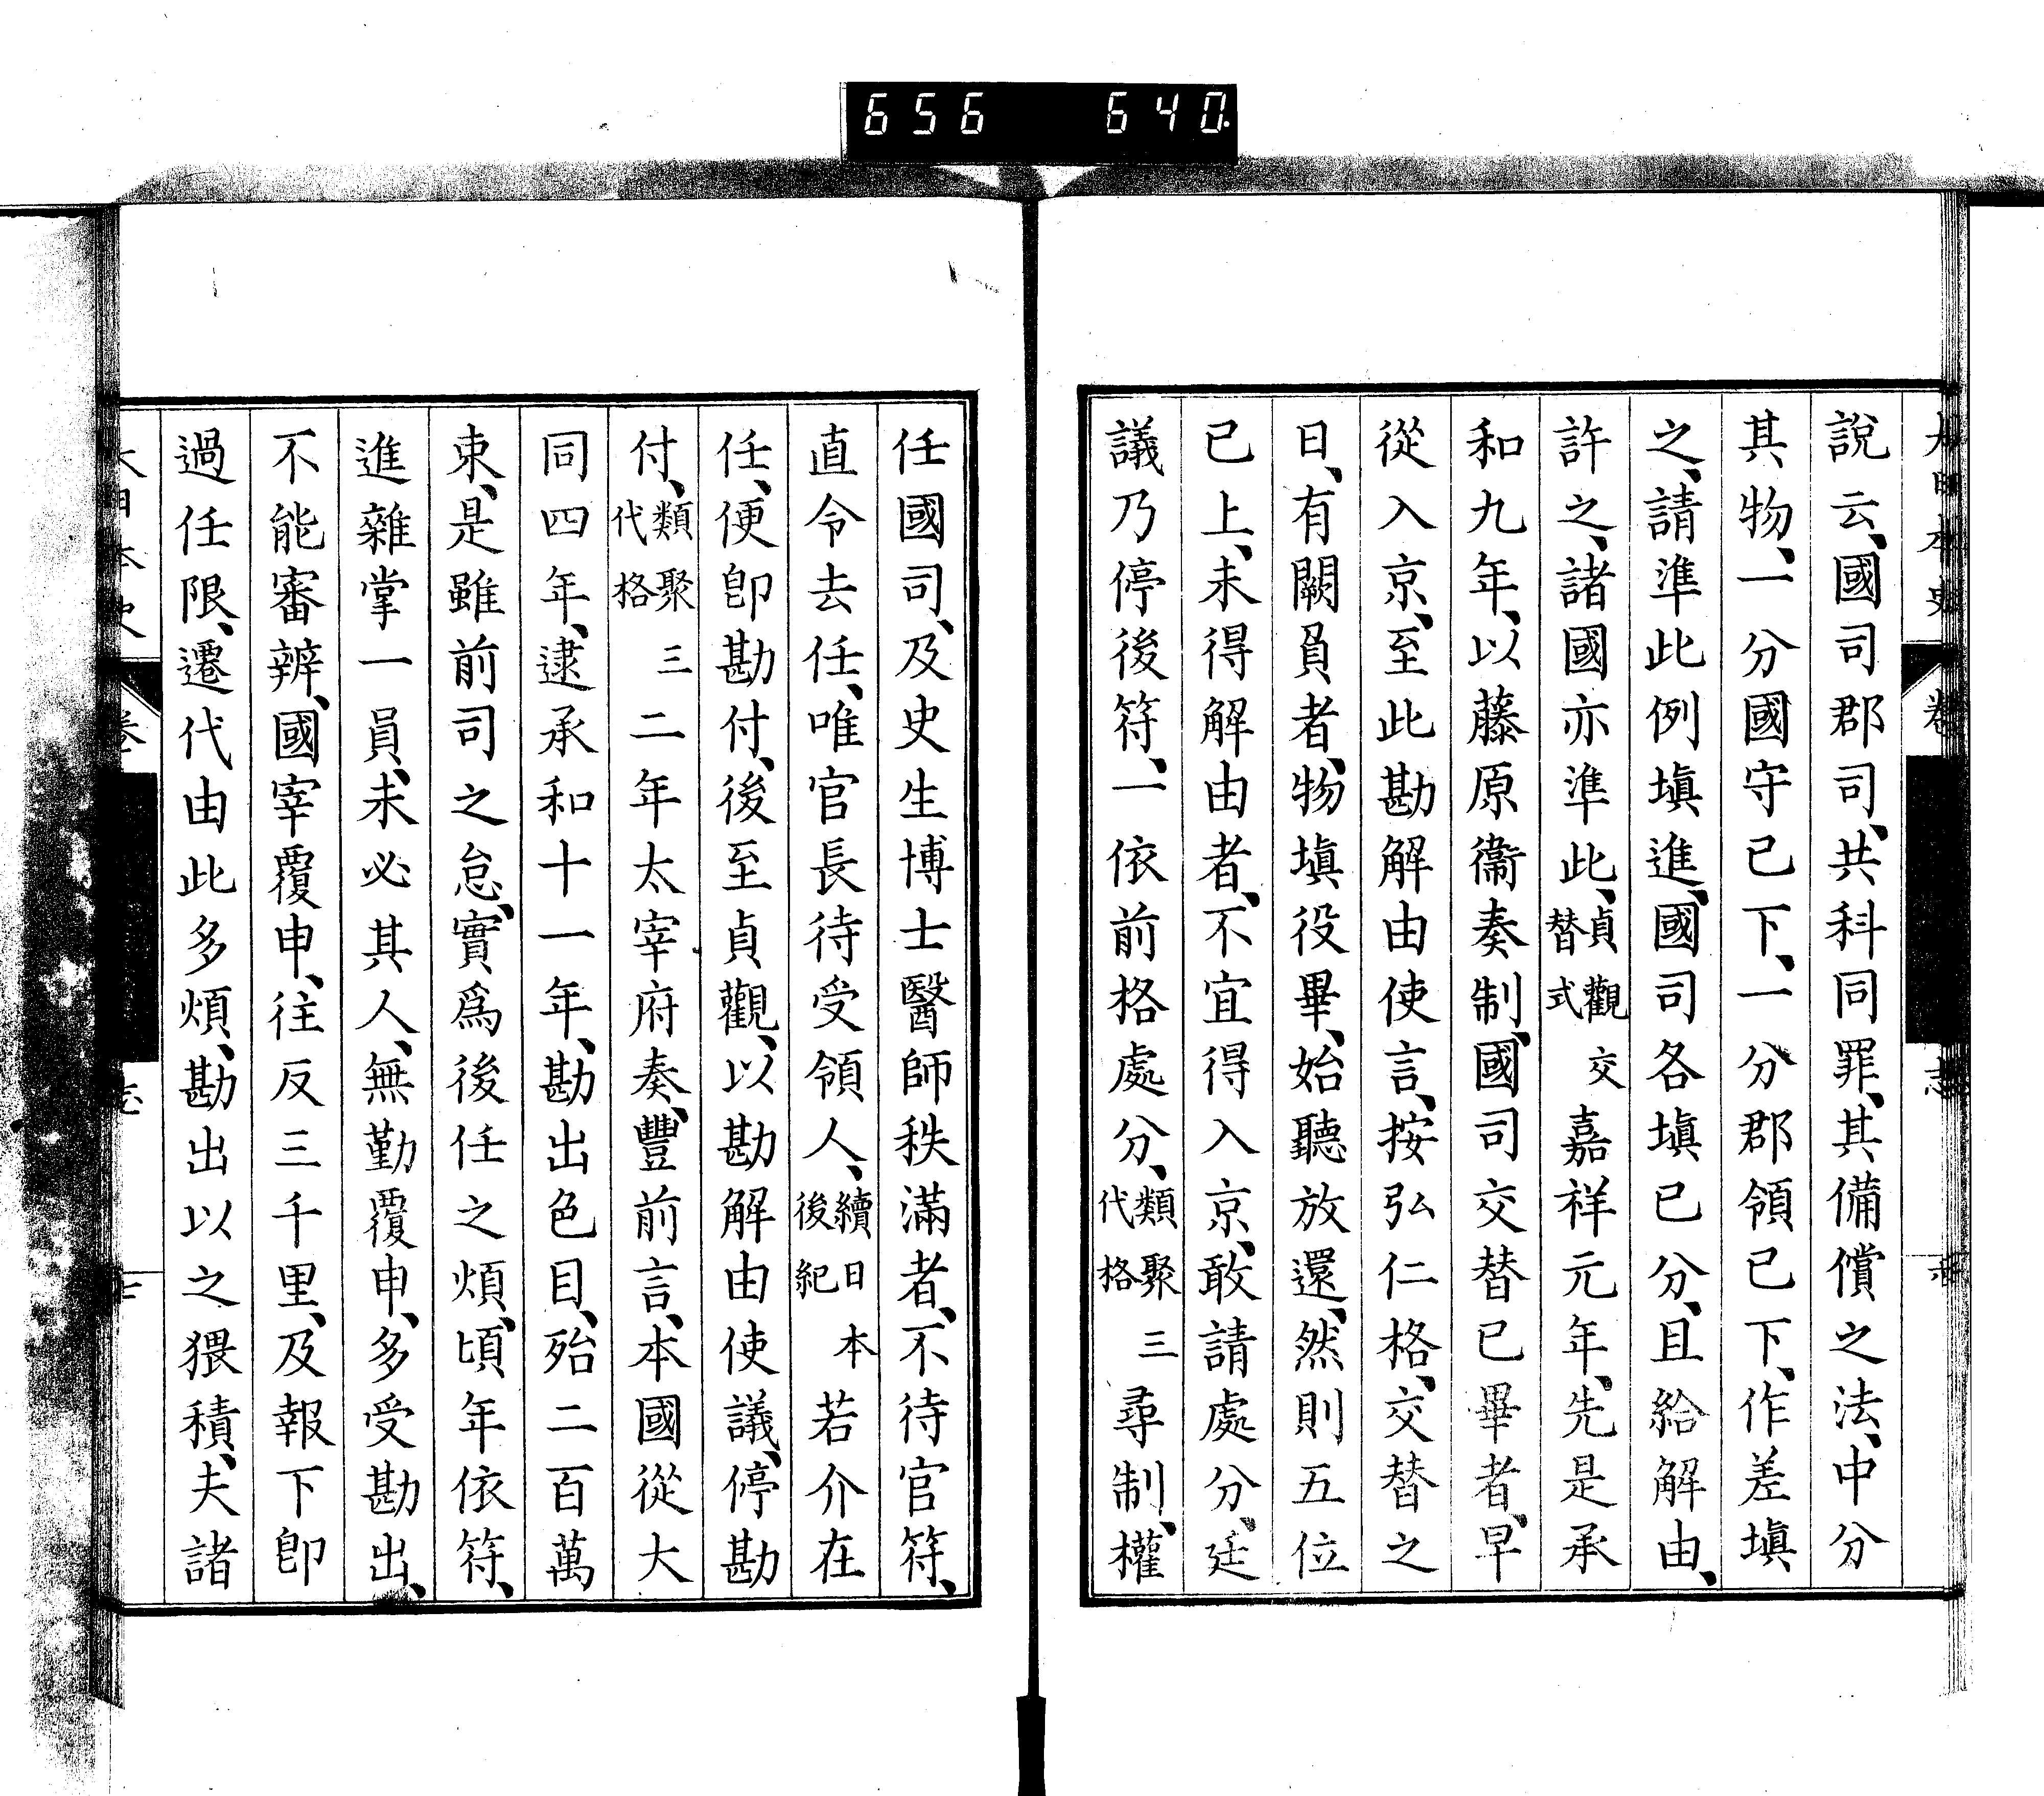 656 640
說云、國司郡司、共科同罪、其備償之法、中分
其物、一分國守已下、一分郡領已下、作差塡
之、請準此例塡進、國司各塡已分、且給解由、
許之、諸國亦準此、貞觀交替式嘉祥元年、先是承
和九年、以藤原衞奏制、國司交替已畢者、早
從入京、至此勘解由使言、按弘仁格、交替之
日、有闕負者、物塡役畢、始聽放還、然則五位
已上、未得解由者、不宜得入京、敢請處分、廷
議乃停後符、一依前格處分、類聚三代格尋制、權
任國司、及史生博士醫師秩滿者、不待官符、
直令去任、唯官長待受領人、續日本後紀若介在
任、便卽勘付、後至貞觀、以勘解由使議、停勘
付、類聚三代格二年太宰府奏、豐前言、本國從大
同四年、逮承和十一年、勘出色目、殆二百萬
束、是雖前司之怠、實爲後任之煩、頃年依符、
進雜掌一員、未必其人、無勤覆申、多受勘出、
不能審辨、國宰覆申、往反三千里、及報下卽
過任限、遷代由此多煩、勘出以之猥積、夫諸